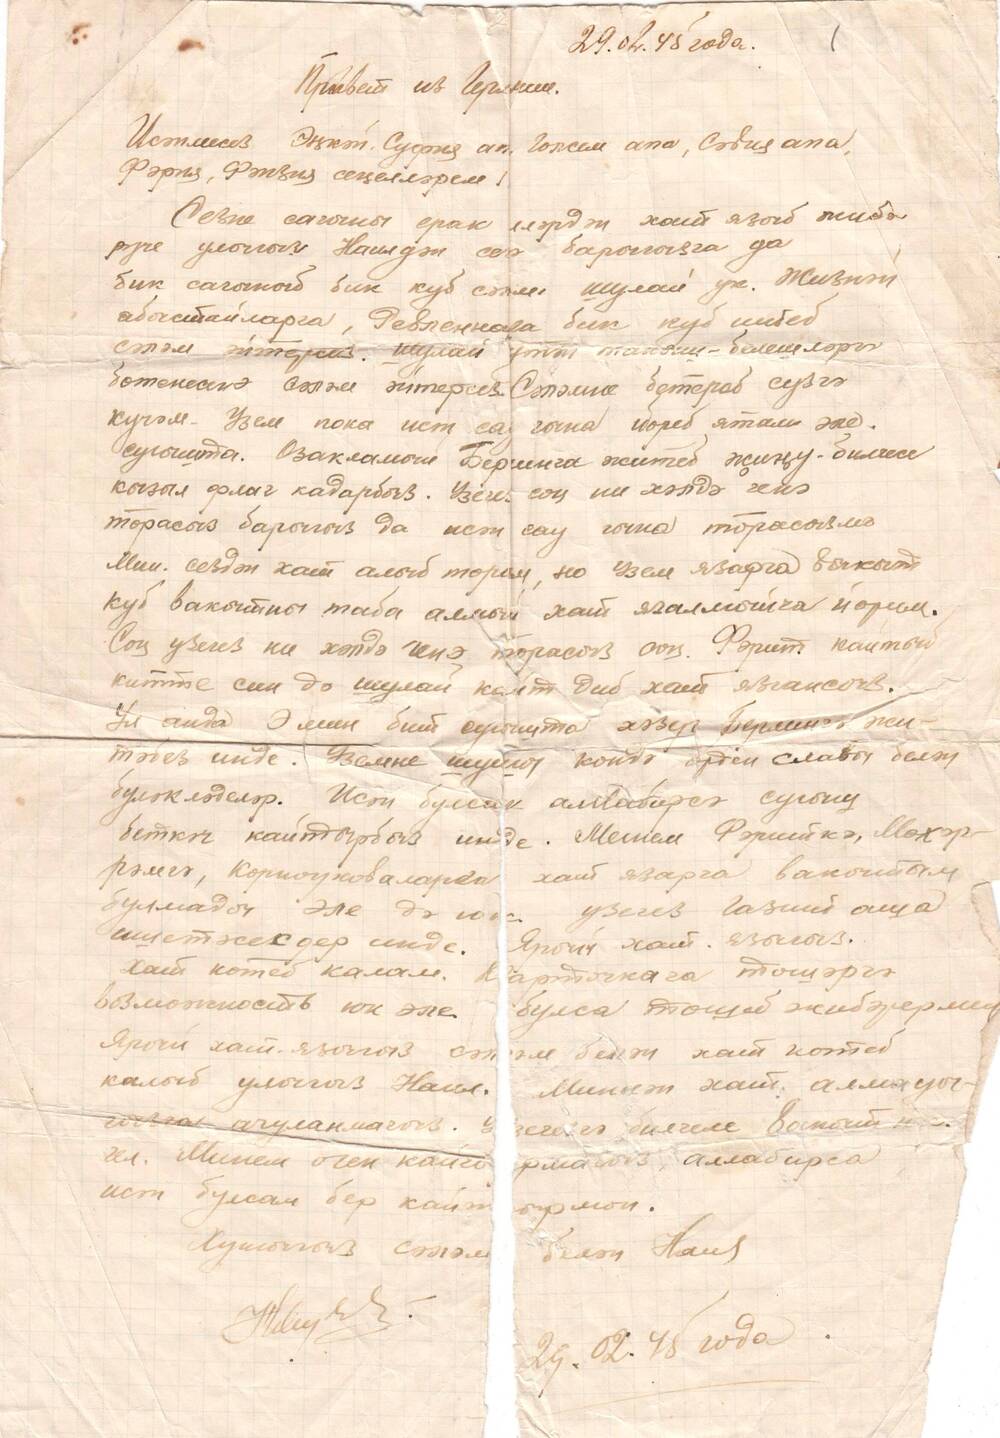 29.02.45 года.
Привет из Германии.
Исэнмесез Энкәй, Суфия ап, Гөлсем апа, Сәвия апа,
Фәрия, Фәвзия сеңелләрем!
Сезне сагынып ерак җирдән хат языб җибә
рүче улыгыз Наилдән сез барыгызга да
бик сагыныб бик куб сәләм шулай ук. Жизнәй
абыстайларга, Девленнага бик куб итеб
сәләм әйтерсез. шулай ук таныш-белешләргә
бөтенесенә сәләм әйтерсез. Сәләмне бетереб сүзгә
күчәм. Үзем пока исән сау гына йөреб ятам әле.
сугышта. Озакламый Берлинга житеб жиңү билгесе
кызыл флаг кадарбыз. Үзегез соң ни хәлдә генә
торасыз барыгыз да исән сау гына торасызмы
Мин. сездән хат алыб торам, но үзем язарга вакыт
куб вакытны таба алмый хат язалмыйча йөрим.
Соң үзегез ни хәлдә генә торасыз соң. Фәрит кайтыб
китте син дә шулай кайт диб хат язгансыз.
Ул анда Ә мин бит сугышта хәзер Берлингә жи-
тәбез инде. Үземне шушы көндә орден славы белән
бүләкләделәр. Исән булсак аллабирсә сугыш
беткәч кайтырбыз инде. Минем Фәриткә, Мөхәр-
рәмгә, хат язарга вакытым
булмады әле дә юк. үзегез Газип абца
ишетәсездер инде. Ярый хат. языгыз.
Хат көтеб калам. Карточкага төшәргә
возможность юк әле булса төшеб жибәрермен
Ярый хат языгыз сәләм белән хат көтеб
калыб улыгыз Наил. Миннән хат алмауы-
гызга ачуланмагыз. үзегезгә билгеле вакыт
Минем өчен кайгырмагыз, аллабирса
исән булсам бер кайтырмын.
Хушыгыз сәләм белән Наил
29.02.45 года.